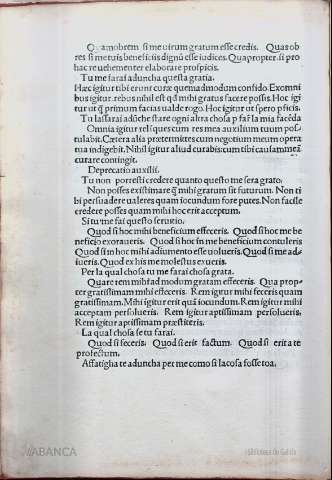 Quamobrem si me uirum gratum esse credis. Quas ob
res si me tuis beneficiis dignū esse iudices. Quapropter. si pro
hac re uehementer elaborare prospicis.
Tu me farai aduncha questa gratia.
Hæc igitur tibi erunt curæ quemadmodum confido. Ex omni
bus igitur. rebus nihil est qđ mihi gratus facere possis. Hoc igi
tur ut q̄ primum facias ualde rogo. Hoc igitur ut spero pficis.
Tu lassarai adūche stare ogni altra chosa p far la mia facēda
Omnia igitur reliques cum res mea auxilium tuum pos-
tulabit. Cætera alia prætermittes cum negotium meum opera
tua indigebit. Nihil igitur aliud curabis: cum tibi causam meā
curare contingit.
Deprecatio auxilii.
Tu non porresti credere quanto questo me sera grato.
Non posses existimare q̄ mihi gratum sit futurum. Non ti
bi persuadere ualeres quam iocundum fore putes. Non facile
credere posses quam mihi hoc erit acceptum.
Si tu me fai questo seruitio.
Quod si hoc mihi beneficium effeceris. Quod si hoc me be
neficio exoraueris. Quod si hoc in me beneficium contuleris
Quod si in hoc mihi adiumento esse uolueris. Quod si me ad-
iueris. Quod ex his me molestus exueris.
Per la qual chosa tu me farai chosa grata.
Quare rem mihi ad modum gratam effeceris. Qua prop-
ter gratissimam mihi effeceris. Rem igitur mihi feceris quam
gratissimam. Mihi igitur erit quā iocundum. Rem igitur mihi
acceptam persolueris. Rem igitur aptissimam persolueris.
Rem igitur aptissimam præstiteris.
La qual chosa se tu farai.
Quod si feceris. Quod si erit factum. Quod si erit a te
profectum.
Affatigha te aduncha per me como si la cosa fosse toa.
ABANCA
Biblioteca de Galicia